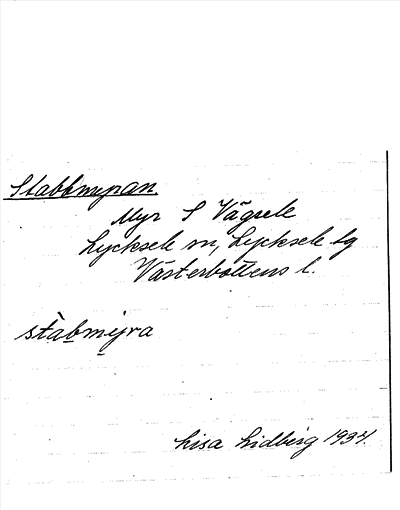 Stabbmyran
Myr S Vägsele
Lycksele sn, Lycksele lg
Västerbottens l.
stàbmỳra
Lisa Lidberg 1934.